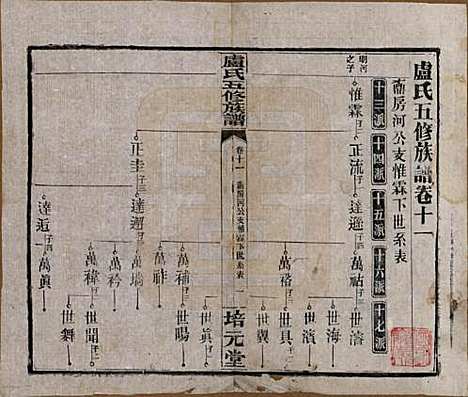 盧氏五修族譜卷十一
衡房河公支惟霖下世系表
十三派 十四派 十五派 十六派 十七派
明河之子
惟霖 正流 達遜 萬祜 世濟
世海
世濱
萬𥙿 世具
世義
盧氏五修族譜
卷十一
衡房河公支惟霖下世系表
培元堂
世眞
正圭 達邂 萬補 世陽
萬祚
萬瑞
萬衿
萬禕 世聞
世舞
達逅 萬眞